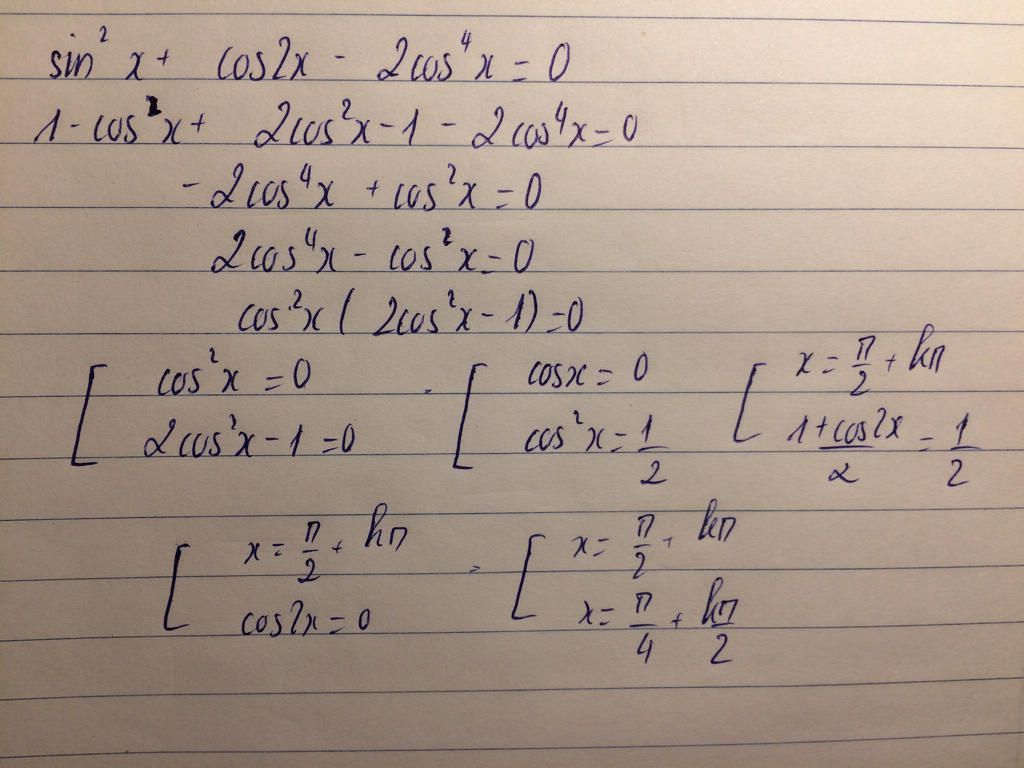 sin² x + cos2x - 2cos⁴x = 0
1 - cos²x + 2cos²x - 1 - 2cos⁴x = 0
- 2cos⁴x + cos²x = 0
2cos⁴x - cos²x = 0
cos²x ( 2cos²x - 1) = 0
[ cos²x = 0 [ cosx = 0 [ x = π/2 + kπ
2cos²x - 1 = 0 cos²x = 1/2 (1 + cos2x)/2 = 1/2
[ x = π/2 + kπ [ x = π/2 + kπ
cos2x = 0 x = π/4 + kπ/2